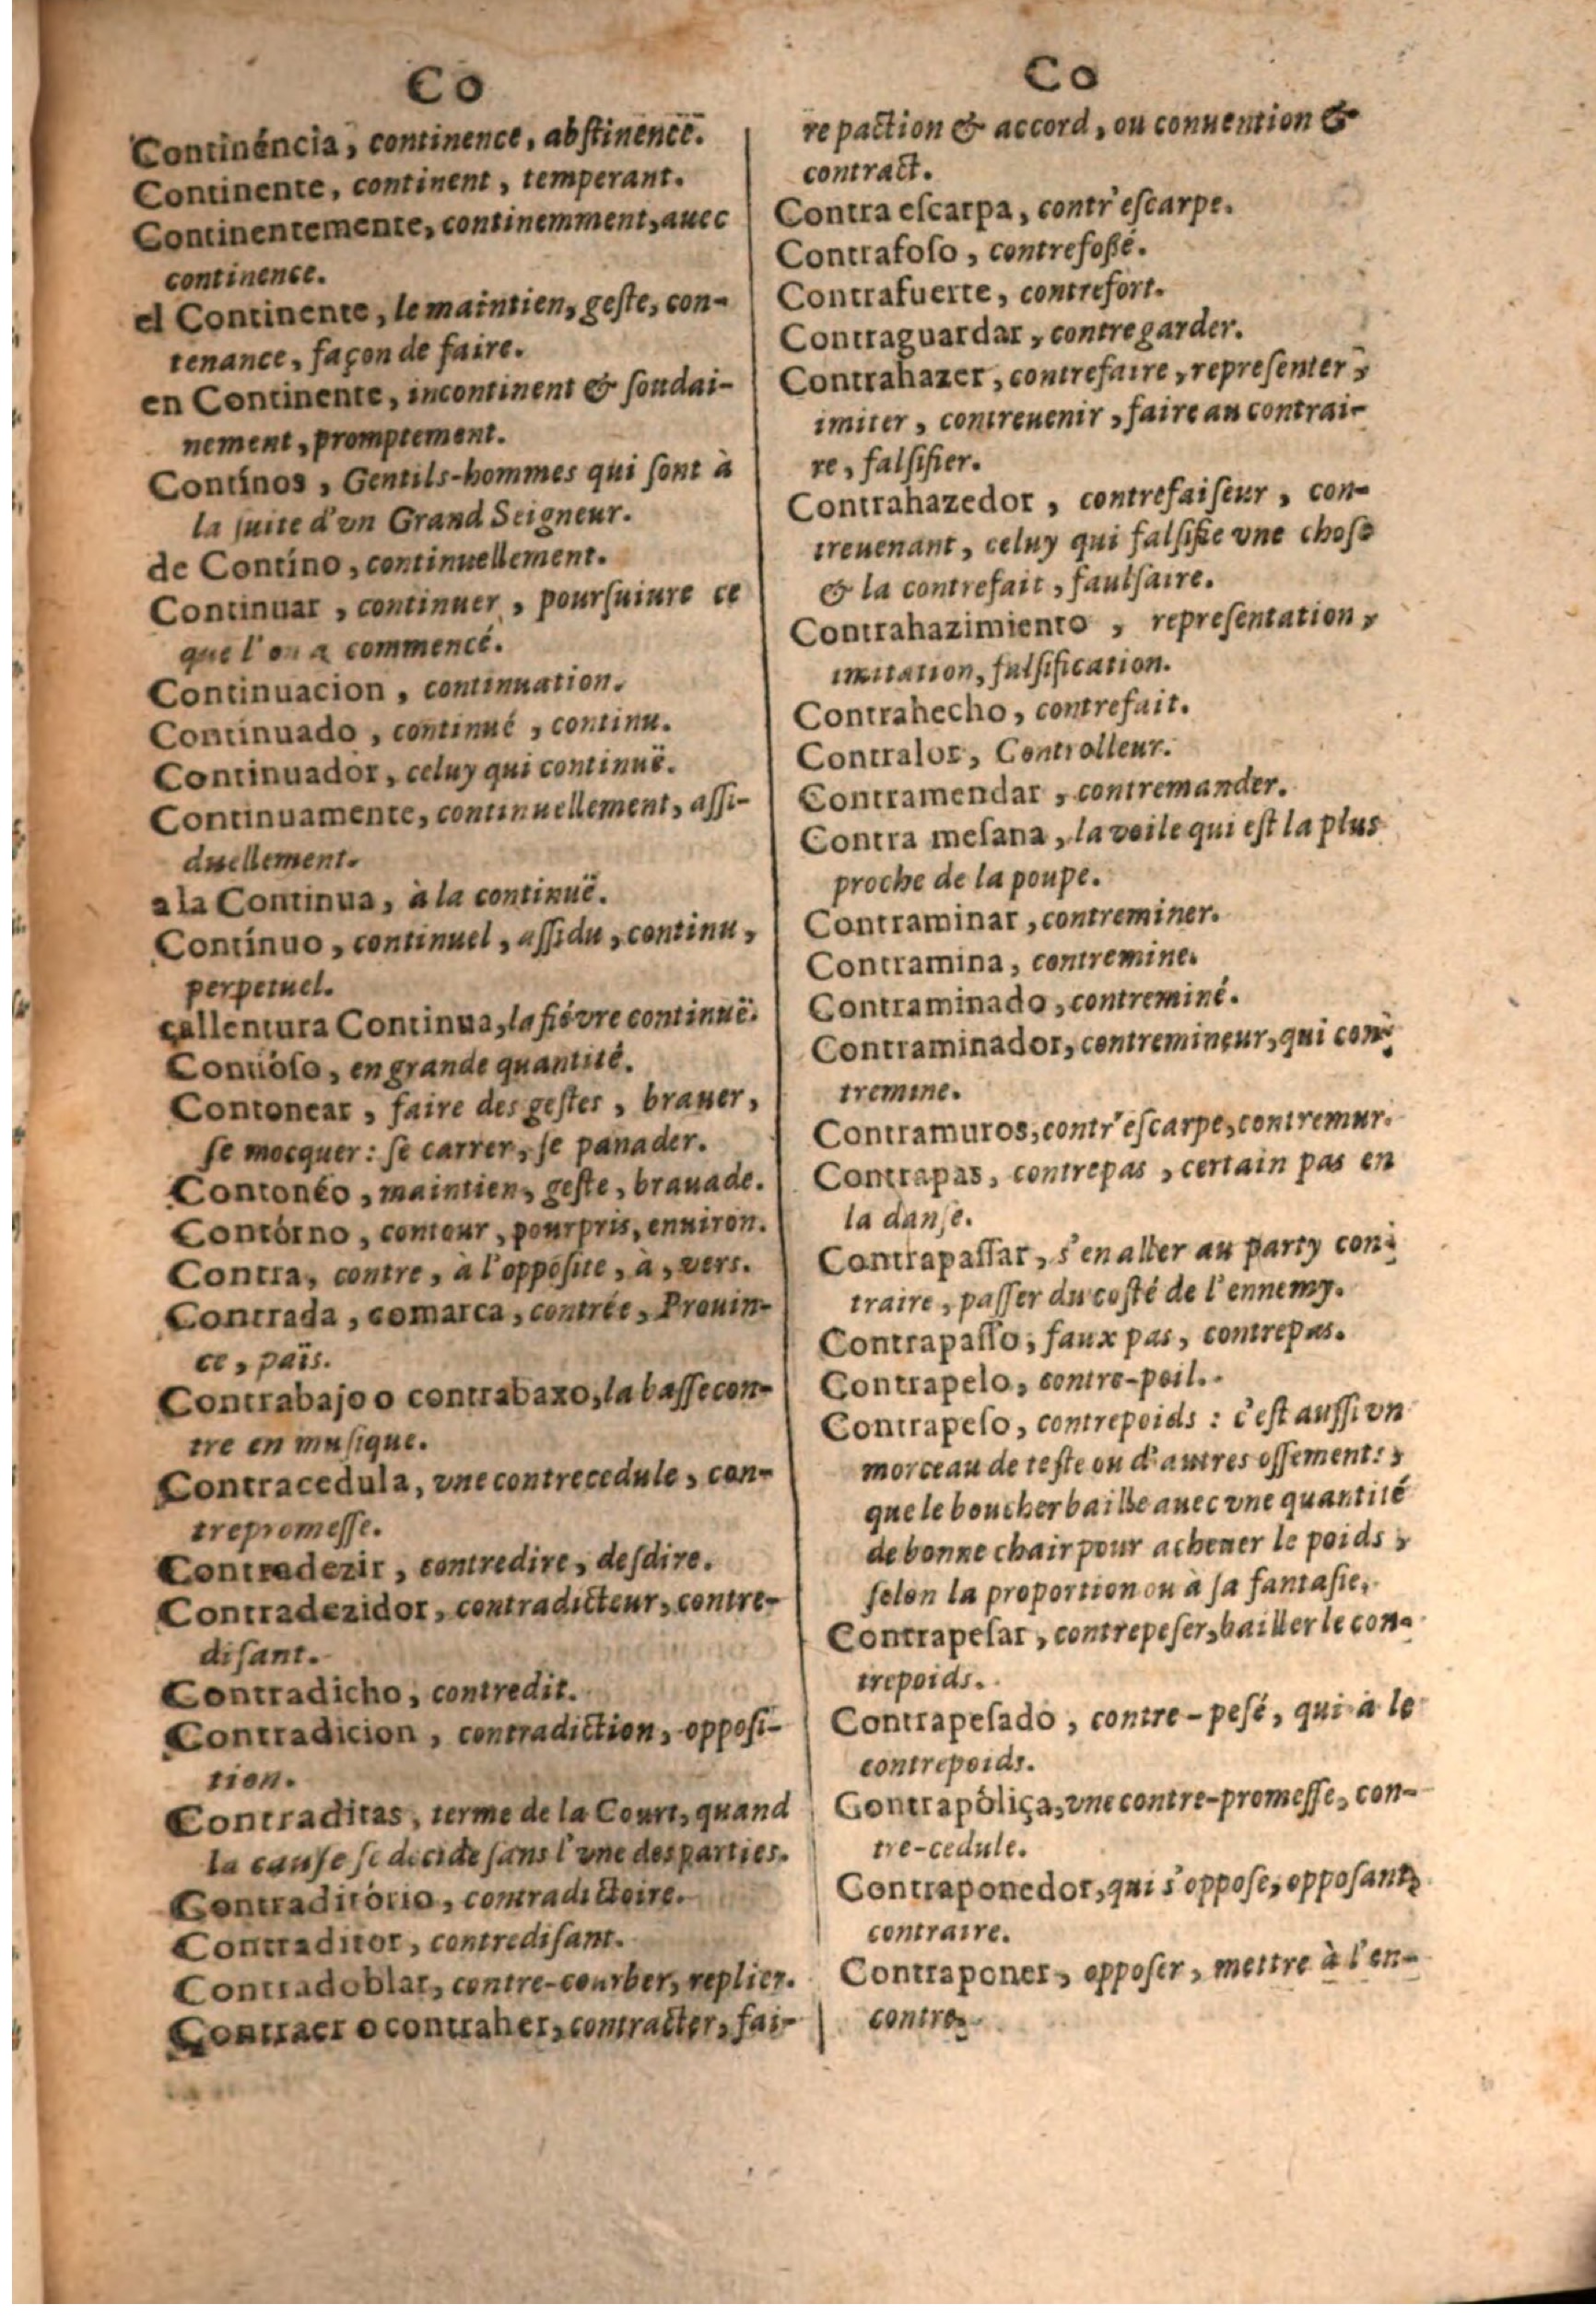 Co
Continéncia, continence, abſtinence.
Continente, continent, temperant.
Continentemente, continemment, auec
continence.
el Continente, le maintien, geſte, con-
tenance, façon de faire.
en Continente, incontinent & ſoudai-
nement, promptement.
Contínos, Gentils-hommes qui ſont à
la ſuite d'vn Grand Seigneur.
de Contíno, continuellement.
Continuar, continuer, pourſuiure ce
que l'on a commencé.
Continuacion, continuation.
Continuado, continué, continu.
Continuador, celuy qui continuë.
Continuamente, continuellement, aſſi-
duellement.
a la Continua, à la continuë.
Contínuo, continuel, aſſidu, continu,
perpetuel.
çallentura Continua, la fiévre continuë.
Contióſo, en grande quantité.
Contonear, faire des geſtes, brauer,
ſe mocquer: ſe carrer, ſe panader.
Contonéo, maintien, geſte, brauade.
Contórno, contour, pourpris, enuiron.
Contra, contre, à l'oppoſite, à, vers.
Contrada, comarca, contrée, Prouin-
ce, païs.
Contrabajo o contrabaxo, la baſſe con-
tre en muſique.
Contracedula, vne contrecedule, con-
trepromeſſe.
Contradezir, contredire, deſdire.
Contradezidor, contradicteur, contre-
diſant.
Contradicho, contredit.
Contradicion, contradiction, oppoſi-
tion.
Contraditas, terme de la Court, quand
la cauſe ſe decide ſans l'vne des parties.
Contraditório, contradictoire.
Contraditor, contrediſant.
Contradoblar, contre-courber, replier.
Contraer o contraher, contracter, fai-
Co
re paction & accord, ou conuention &
contract.
Contra eſcarpa, contr'eſcarpe.
Contrafoſo, contrefoßé.
Contrafuerte, contrefort.
Contraguardar, contregarder.
Contrahazer, contrefaire, repreſenter,
imiter, contreuenir, faire au contrai-
re, falſifier.
Contrahazedor, contrefaiſeur, con-
treuenant, celuy qui falſifie vne choſe
& la contrefait, faulſaire.
Contrahazimiento, repreſentation,
imitation, falſification.
Contrahecho, contrefait.
Contralor, Controlleur.
Contramendar, contremander.
Contra meſana, la voile qui eſt la plus
proche de la poupe.
Contraminar, contreminer.
Contramina, contremine.
Contraminado, contreminé.
Contraminador, contremineur, qui con-
tremine.
Contramuros, contr'eſcarpe, contremur.
Contrapas, contrepas, certain pas en
la danſe.
Contrapaſſar, s'en aller au party con-
traire, paſſer du coſté de l'ennemy.
Contrapaſſo, faux pas, contrepas.
Contrapelo, contre-poil.
Contrapeſo, contrepoids: c'eſt auſſi vn
morceau de teſte ou d'autres oſſements,
que le boucher baille auec vne quantité
de bonne chair pour acheuer le poids,
ſelon la proportion ou à ſa fantaſie.
Contrapeſar, contrepeſer, bailler le con-
trepoids.
Contrapeſado, contre-peſé, qui à le
contrepoids.
Contrapóliça, vne contre-promeſſe, con-
tre-cedule.
Contraponedor, qui s'oppoſe, oppoſant,
contraire.
Contraponer, oppoſer, mettre à l'en-
contre.